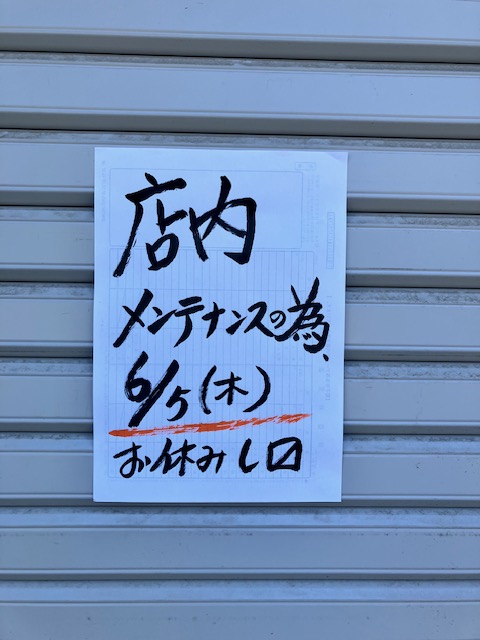 店内
メンテナンスの為、
6/5(木)
お休み〼